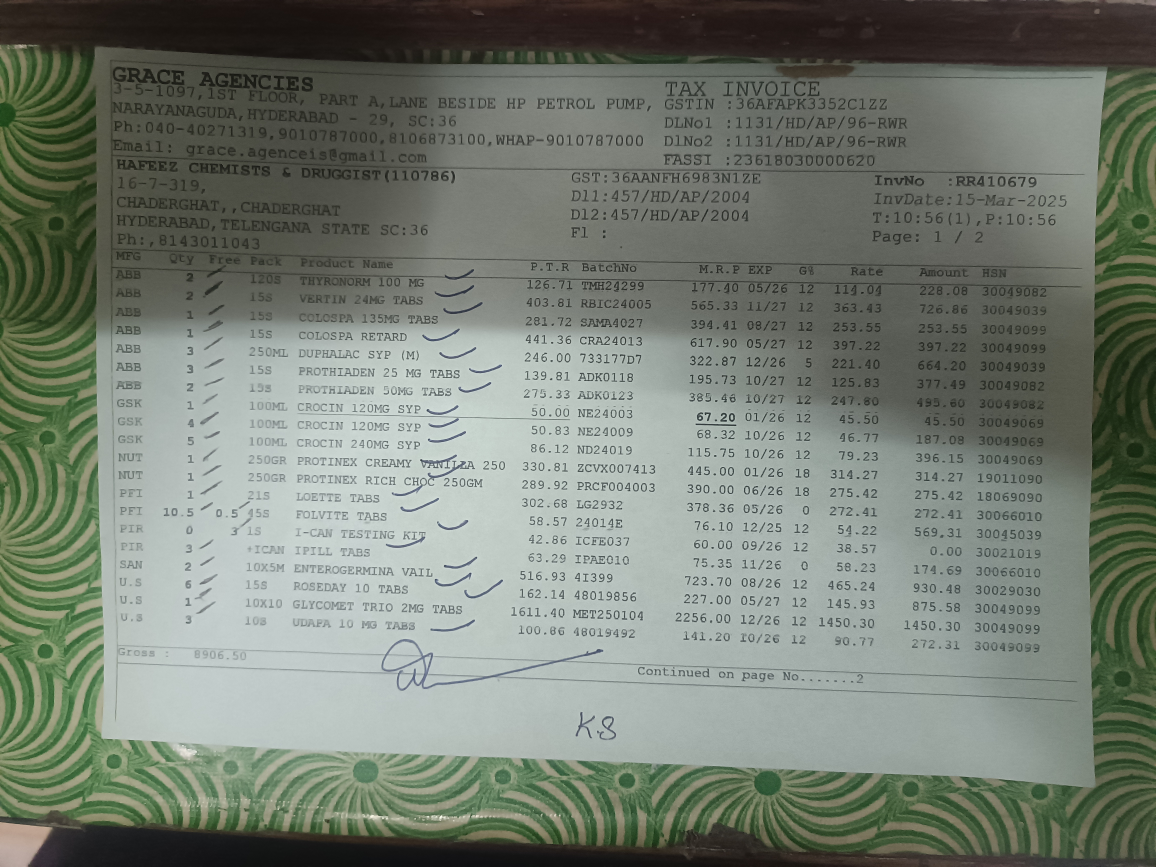 GRACE AGENCIES TAX INVOICE
3-5-1097,1ST FLOOR, PART A,LANE BESIDE HP PETROL PUMP, GSTIN :36AFAPK3352C1ZZ
NARAYANAGUDA,HYDERABAD - 29, SC:36 DLNo1 :1131/HD/AP/96-RWR
Ph:040-40271319,9010787000,8106873100,WHAP-9010787000 DlNo2 :1131/HD/AP/96-RWR
Email: grace.agenceis@gmail.com FASSI :23618030000620
HAFEEZ CHEMISTS & DRUGGIST(110786) GST:36AANFH6983N1ZE InvNo :RR410679
16-7-319, Dl1:457/HD/AP/2004 InvDate:15-Mar-2025
CHADERGHAT,,CHADERGHAT Dl2:457/HD/AP/2004 T:10:56(1),P:10:56
HYDERABAD,TELENGANA STATE SC:36 Fl : Page: 1 / 2
Ph:,8143011043
MFG Qty Free Pack Product Name P.T.R BatchNo M.R.P EXP G% Rate Amount HSN
ABB 2 120S THYRONORM 100 MG 126.71 TMH24299 177.40 05/26 12 114.04 228.08 30049082
ABB 2 15S VERTIN 24MG TABS 403.81 RBIC24005 565.33 11/27 12 363.43 726.86 30049039
ABB 1 15S COLOSPA 135MG TABS 281.72 SAMA4027 394.41 08/27 12 253.55 253.55 30049099
ABB 1 15S COLOSPA RETARD 441.36 CRA24013 617.90 05/27 12 397.22 397.22 30049099
ABB 3 250ML DUPHALAC SYP (M) 246.00 733177D7 322.87 12/26 5 221.40 664.20 30049039
ABB 3 15S PROTHIADEN 25 MG TABS 139.81 ADK0118 195.73 10/27 12 125.83 377.49 30049082
ABB 2 15S PROTHIADEN 50MG TABS 275.33 ADK0123 385.46 10/27 12 247.80 495.60 30049082
GSK 1 100ML CROCIN 120MG SYP 50.00 NE24003 67.20 01/26 12 45.50 45.50 30049069
GSK 4 100ML CROCIN 120MG SYP 50.83 NE24009 68.32 10/26 12 46.77 187.08 30049069
GSK 5 100ML CROCIN 240MG SYP 86.12 ND24019 115.75 10/26 12 79.23 396.15 30049069
NUT 1 250GR PROTINEX CREAMY VANILLA 250 330.81 ZCVX007413 445.00 01/26 18 314.27 314.27 19011090
NUT 1 250GR PROTINEX RICH CHOC 250GM 289.92 PRCF004003 390.00 06/26 18 275.42 275.42 18069090
PFI 1 21S LOETTE TABS 302.68 LG2932 378.36 05/26 0 272.41 272.41 30066010
PFI 10.5 0.5 45S FOLVITE TABS 58.57 24014E 76.10 12/25 12 54.22 569.31 30045039
PIR 0 3 1S I-CAN TESTING KIT 42.86 ICFE037 60.00 09/26 12 38.57 0.00 30021019
PIR 3 +ICAN IPILL TABS 63.29 IPAE010 75.35 11/26 0 58.23 174.69 30066010
SAN 2 10X5M ENTEROGERMINA VAIL 516.93 4I399 723.70 08/26 12 465.24 930.48 30029030
U.S 6 15S ROSEDAY 10 TABS 162.14 48019856 227.00 05/27 12 145.93 875.58 30049099
U.S 1 10X10 GLYCOMET TRIO 2MG TABS 1611.40 MET250104 2256.00 12/26 12 1450.30 1450.30 30049099
U.S 3 10S UDAPA 10 MG TABS 100.86 48019492 141.20 10/26 12 90.77 272.31 30049099
Gross : 8906.50
Continued on page No.......2
K.S